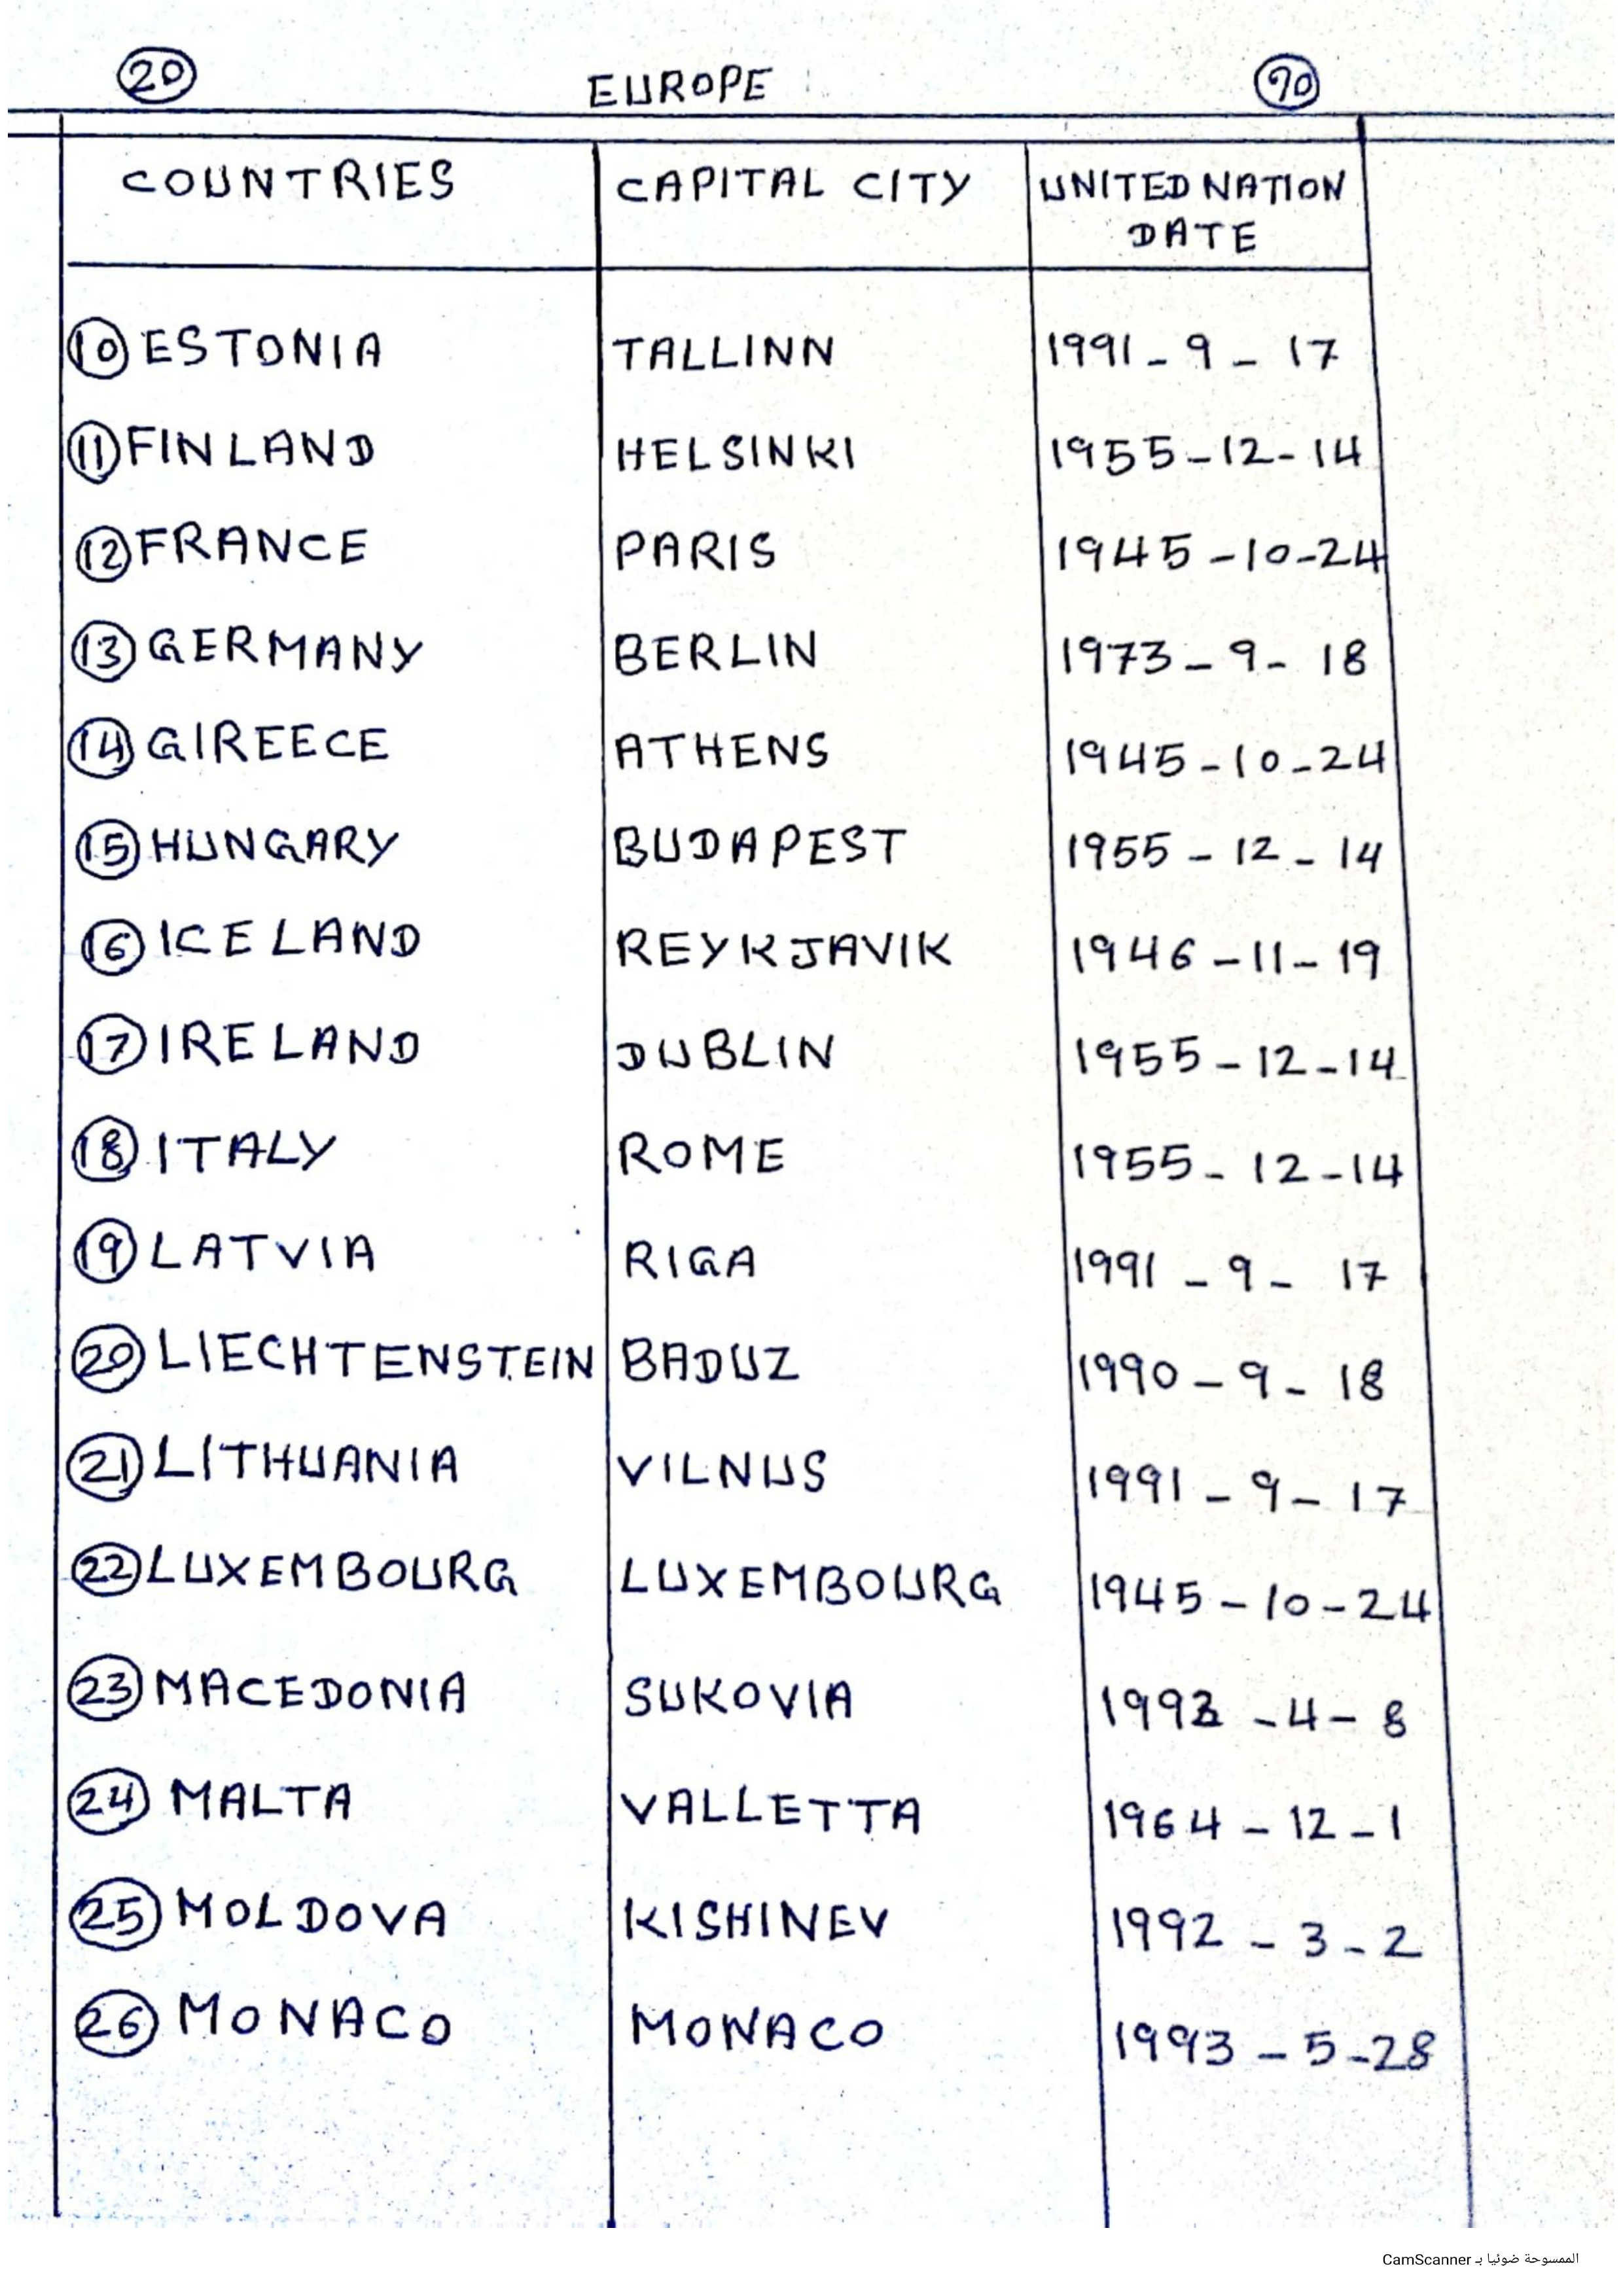 20 EUROPE 90
COUNTRIES CAPITAL CITY UNITED NATION DATE
10 ESTONIA TALLINN 1991-9-17
11 FINLAND HELSINKI 1955-12-14
12 FRANCE PARIS 1945-10-24
13 GERMANY BERLIN 1973-9-18
14 GIREECE ATHENS 1945-10-24
15 HUNGARY BUDAPEST 1955-12-14
16 ICELAND REYKJAVIK 1946-11-19
17 IRELAND DUBLIN 1955-12-14
18 ITALY ROME 1955-12-14
19 LATVIA RIGA 1991-9-17
20 LIECHTENSTEIN BADUZ 1990-9-18
21 LITHUANIA VILNUS 1991-9-17
22 LUXEMBOURG LUXEMBOURG 1945-10-24
23 MACEDONIA SUKOVIA 1993-4-8
24 MALTA VALLETTA 1964-12-1
25 MOLDOVA KISHINEV 1992-3-2
26 MONACO MONACO 1993-5-28
الممسوحة ضوئيا بـ CamScanner